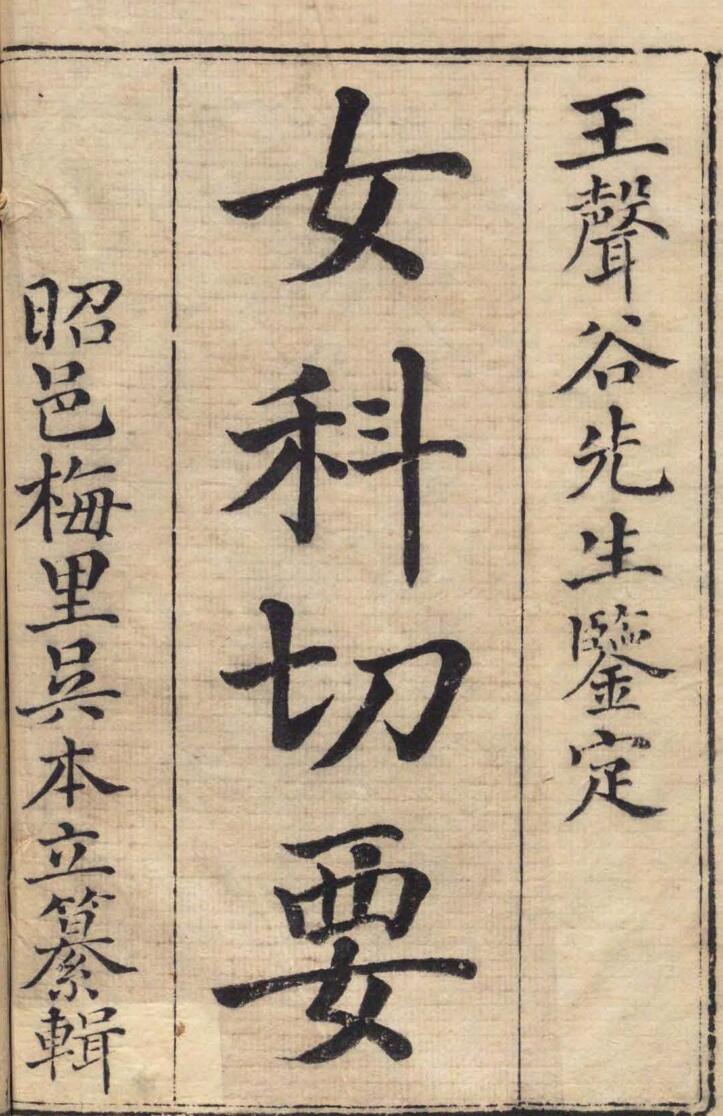 王聲谷先生鑒定
女科切要
昭邑梅里吳本立纂輯